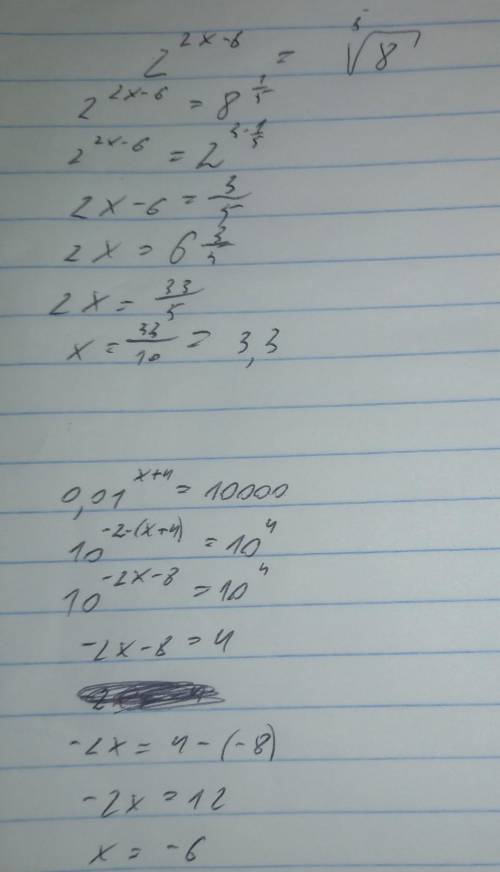 2^{2x-6} = \sqrt[5]{8}
2^{2x-6} = 8^{\frac{1}{5}}
2^{2x-6} = 2^{3·\frac{1}{5}}
2x-6 = \frac{3}{5}
2x = 6\frac{3}{5}
2x = \frac{33}{5}
x = \frac{33}{10} = 3,3
0,01^{x+4} = 10000
10^{-2·(x+4)} = 10^4
10^{-2x-8} = 10^4
-2x-8 = 4
-2x = 4-(-8)
-2x = 12
x = -6